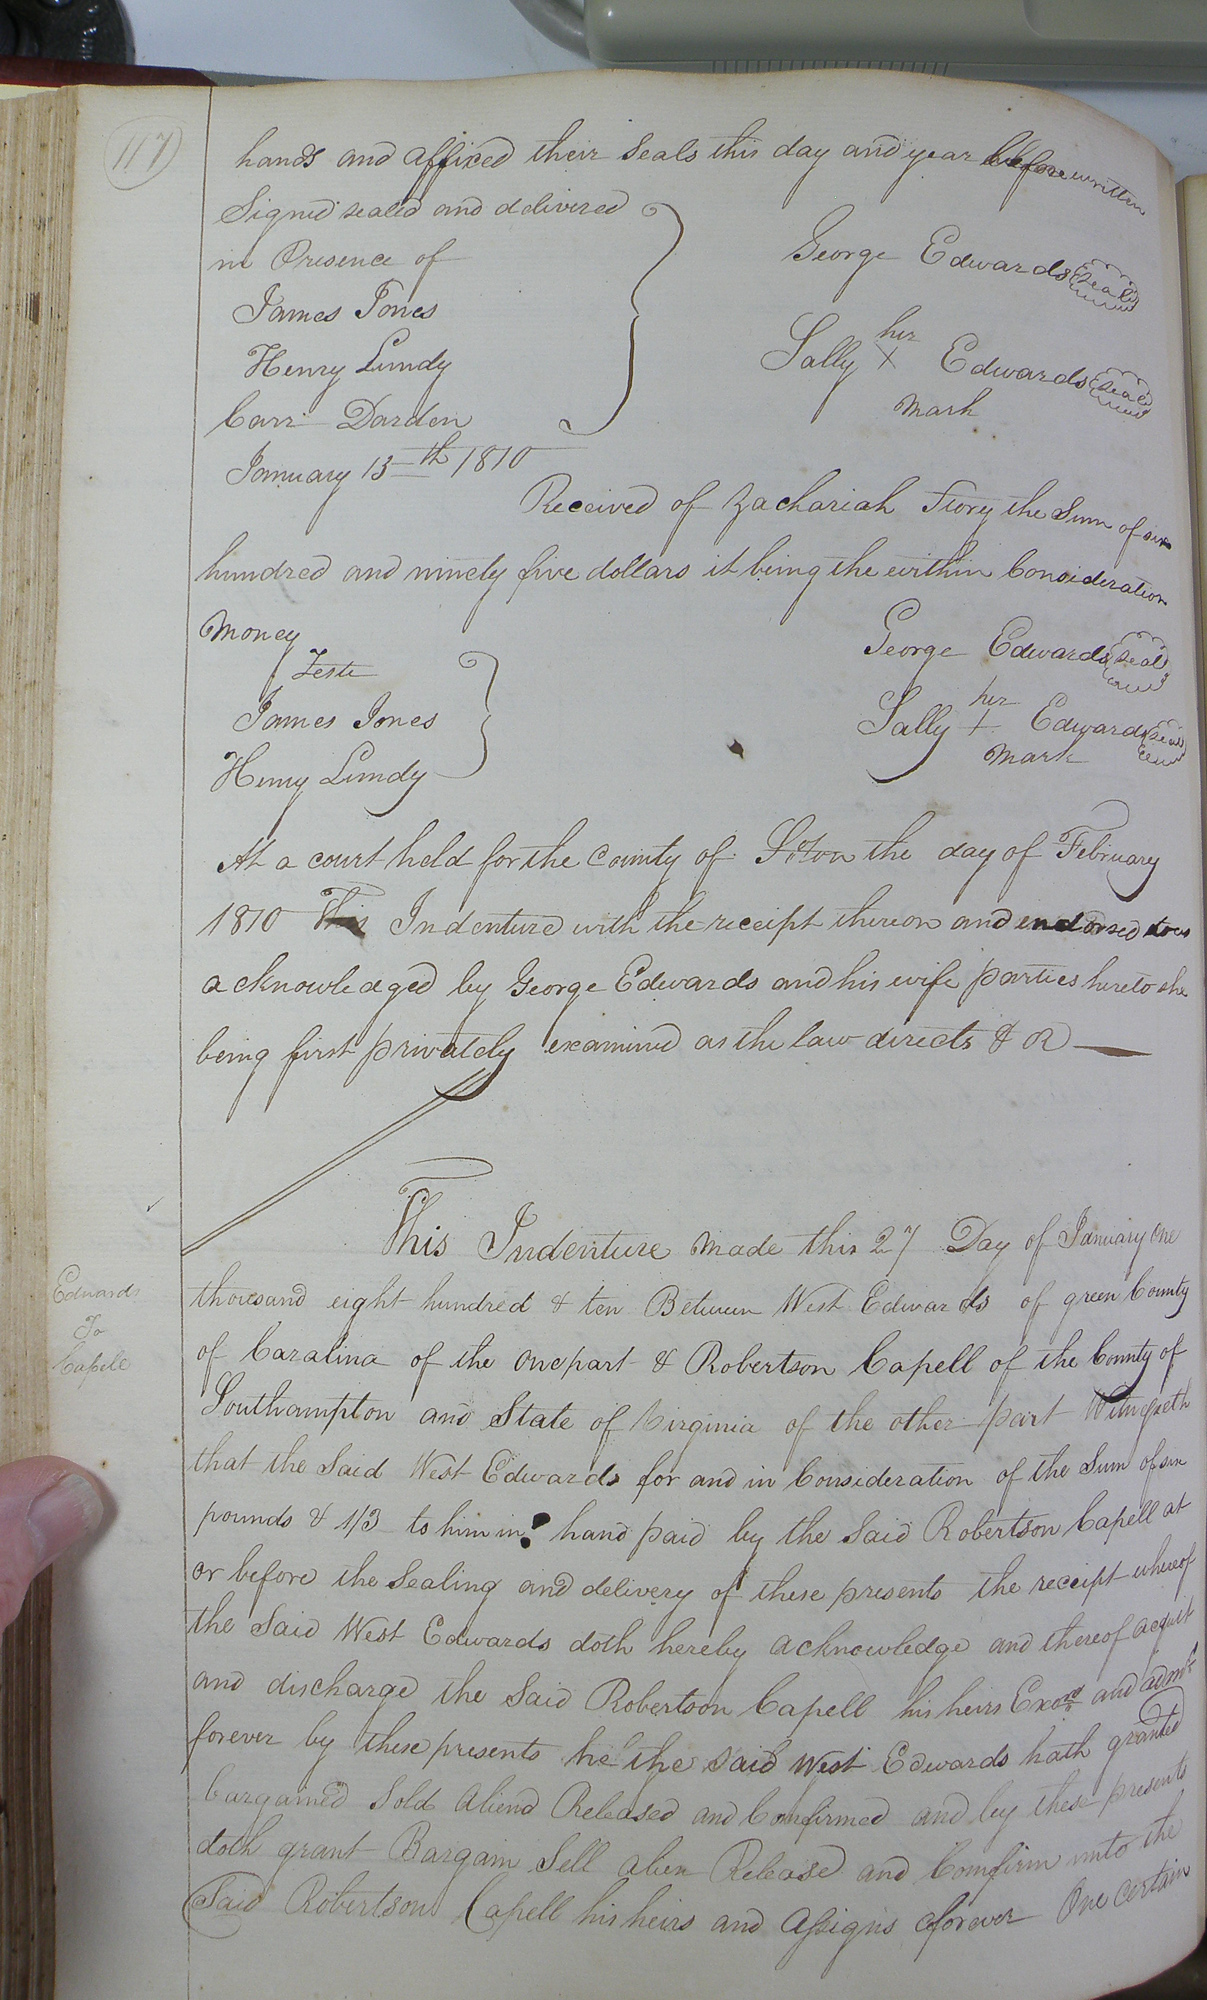 117
hands and affixed their seals this day and year before written
Signed sealed and delivered
in Presence of
George Edwards seal
James Jones
Henry Lundy
her
Sally X Edwards seal
mark
Carr Darden
January 13th 1810
Received of Zachariah the Sum of six
hundred and ninety five dollars it being the within Consideration
money
George Edwards seal
Teste
James Jones
her
Sally + Edwards seal
mark
Henry Lundy
At a court held for the County of S.ton the day of February
1810 This Indenture with the receipt thereon and endorsed was
acknowledged by George Edwards and his wife parties hereto she
being first privately examined as the law directs & R
This Indenture made this 27 Day of January one
Edwards
To
Capele
thousand eight hundred & ten Between West Edwards of green County
of Caralina of the one part & Robertson Capell of the County of
Southampton and State of Virginia of the other part Witnesseth
that the Said West Edwards for and in Consideration of the Sum of six
pounds & 1/3 to him in hand paid by the Said Robertson Capell at
or before the Sealing and delivery of these presents the receipt whereof
the Said West Edwards doth hereby acknowledge and thereof acquit
and discharge the Said Robertson Capell his heirs Exors and admrs
forever by these presents he the said West Edwards hath granted
bargained Sold Aliend Released and Confirmed and by these presents
doth grant Bargain Sell alien Release and Comfirm unto the
Said Robertson Capell his heirs and Assigns forever One certain